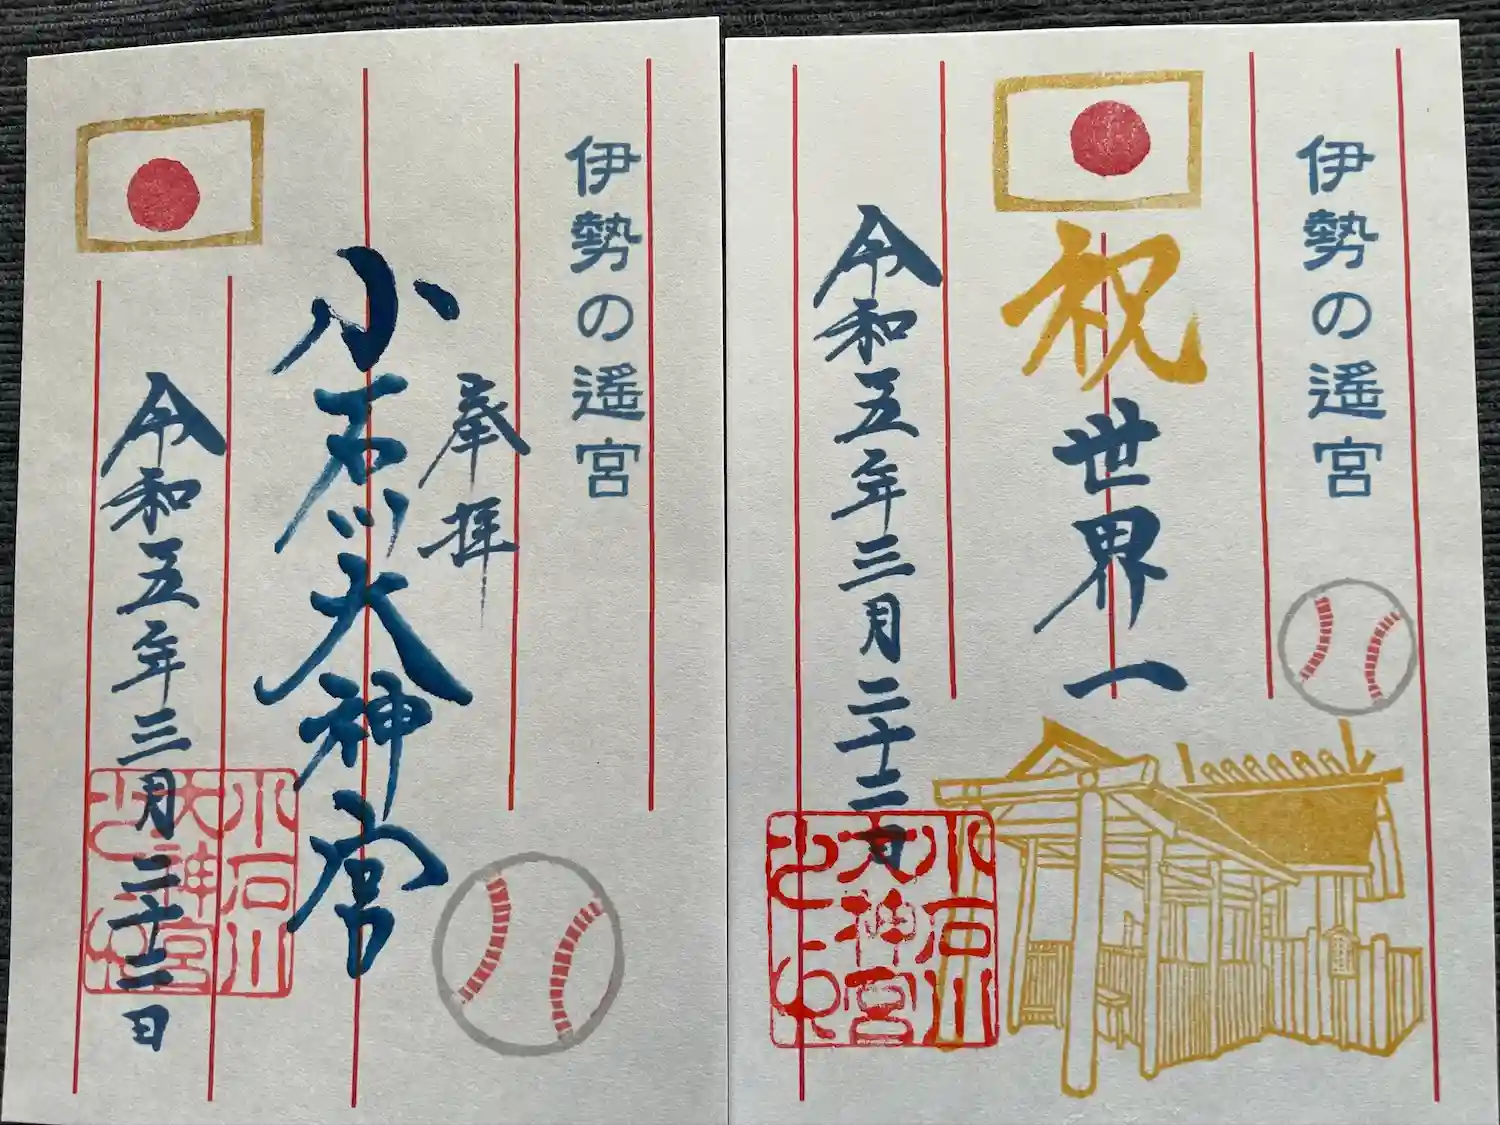 伊勢の遥宮
奉拝
小石川大神宮
令和五年三月二十二日
小石川
大神宮
之印
伊勢の遥宮
祝
世界一
令和五年三月二十二日
小石川
大神宮
之印